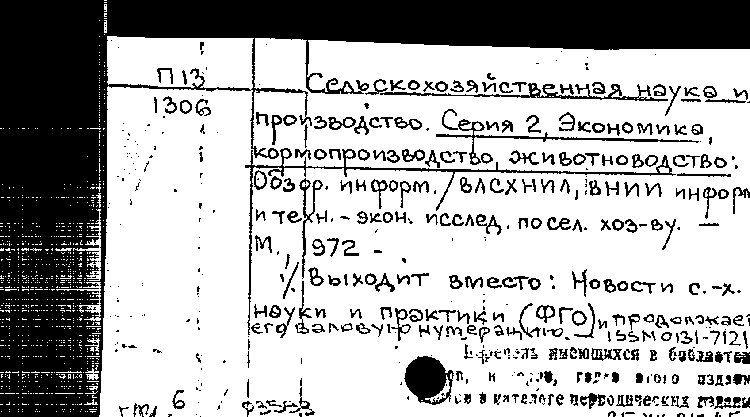 П13
Сельскохозяйственная наука и
1306
производство. Серия 2, Экономика,
кормопроизводство, животноводство:
Обзор. информ. / ВАСХНИЛ, ВНИИ информ
и техн.-экон. исслед. по сел. хоз-ву. —
М., 1972 -
// Выходит вместо: Новости с.-х.
науки и практики (ФГО) и продолжает
его валовую нумерацию. — ISSN 0131-7121
Перечень имеющихся в библиотек
и года этого издан
в каталоге периодических издани
6
93553